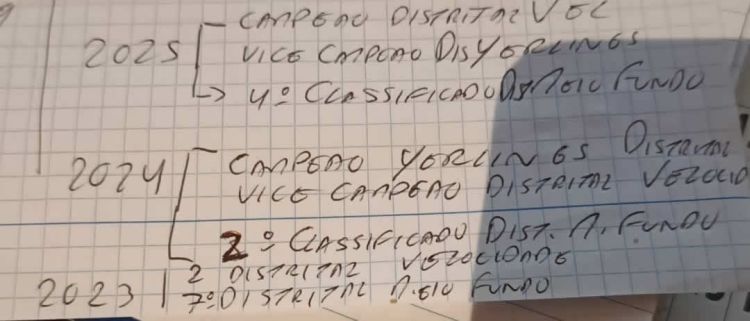 2025 - CAMPEAO DISTRITAL VEL
VICE CAMPEAO DIS YERLINGS
-> 4º CLASSIFICADO DIS MEIO FUNDO
2024 - CAMPEAO YERLINGS DISTRITAL
VICE CAMPEAO DISTRITAL VELOCID
2º CLASSIFICADO DIST. M. FUNDO
2023 | 2 DISTRITAL VELOCIDADE
7º DISTRITAL MEIO FUNDO